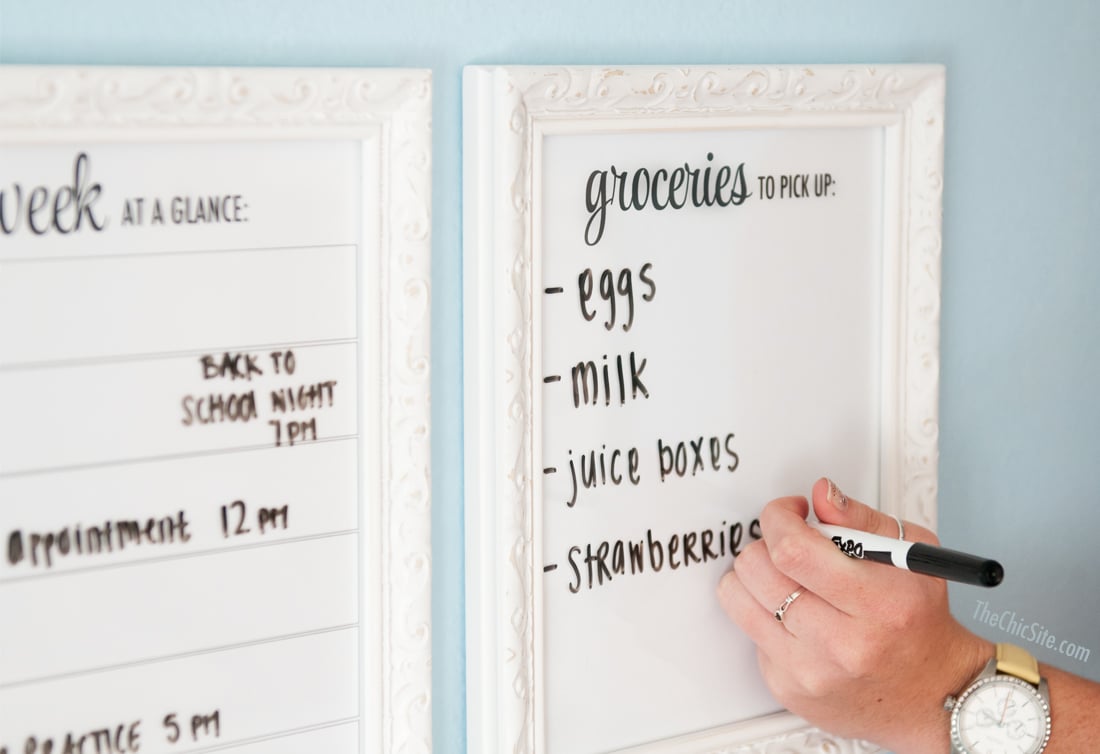 week AT A GLANCE:
BACK TO
SCHOOL NIGHT
7PM
appointment 12 PM
PRACTICE 5 PM
groceries TO PICK UP:
- eggs
- milk
- juice boxes
- strawberries
Expo
TheChicSite.com